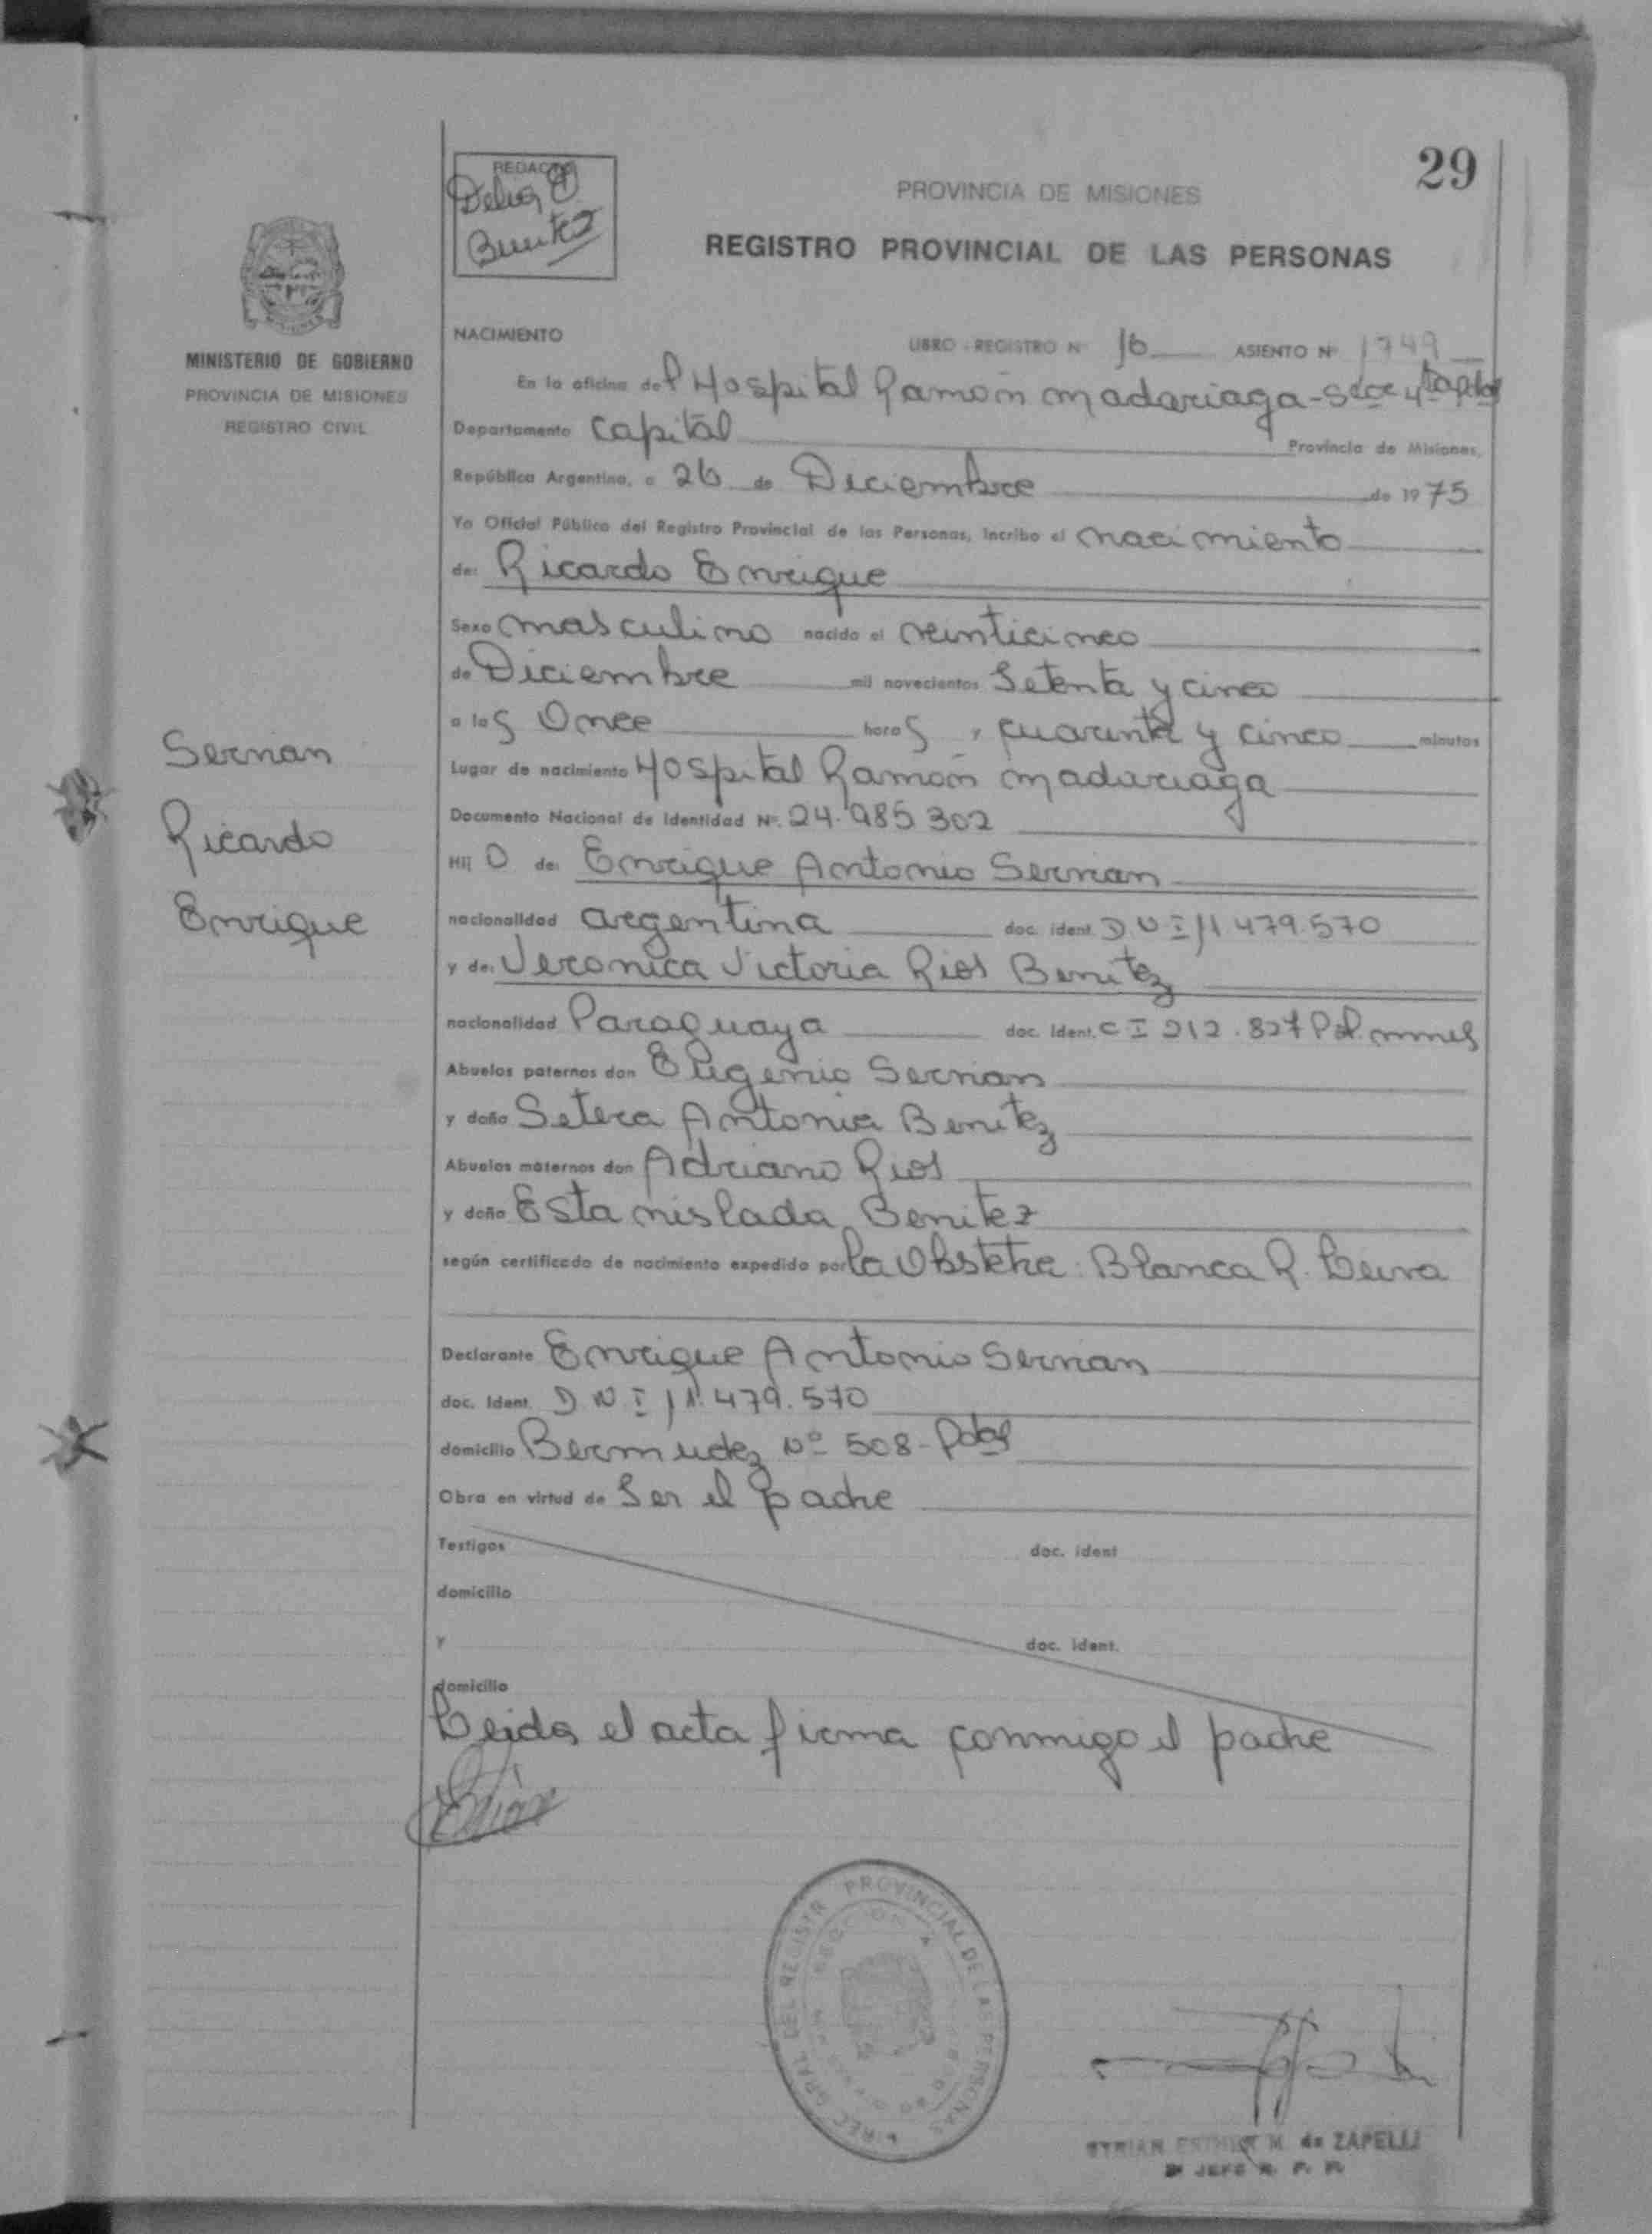 29
REDACTO
Delia
Benitez
PROVINCIA DE MISIONES
REGISTRO PROVINCIAL DE LAS PERSONAS
MINISTERIO DE GOBIERNO
PROVINCIA DE MISIONES
REGISTRO CIVIL
NACIMIENTO LIBRO - REGISTRO Nº 16 ASIENTO Nº 1749
En la oficina del Hospital Ramón Madariaga - Secc 4ª Capital
Departamento Capital Provincia de Misiones,
República Argentina, a 26 de Diciembre de 1975
Yo Oficial Público del Registro Provincial de las Personas, incribo el nacimiento
de: Ricardo Enrique
Sexo masculino nacido el veinticinco
de Diciembre mil novecientos Setenta y cinco
a las Once horas, cuarenta y cinco minutos
Lugar de nacimiento Hospital Ramón Madariaga
Documento Nacional de Identidad Nº. 24.985.302
Hij o de: Enrique Antonio Sernan
nacionalidad argentina doc. ident. D N I 11.479.570
y de: Veronica Victoria Rios Benitez
nacionalidad Paraguaya doc. ident. C I 212.827 Pol. mnes
Abuelos paternos don Eugenio Sernan
y doña Setera Antonia Benitez
Abuelos maternos don Adriano Rios
y doña Estanislada Benitez
según certificado de nacimiento expedido por la Obstetra: Blanca R. Leiva
Declarante Enrique Antonio Sernan
doc. Ident. D N I 11.479.570
domicilio Bermudez Nº 508 - Pdas
Obra en virtud de Ser el padre
Testigos doc. ident
domicilio
y doc. ident.
domicilio
Leida el acta firma conmigo el padre
Sernan
Ricardo
Enrique
DIREC. GRAL. DEL REGISTR PROVINCIAL DE LAS PERSONAS
ESTHER M. de ZAPELLI
JEFE R. P. P.